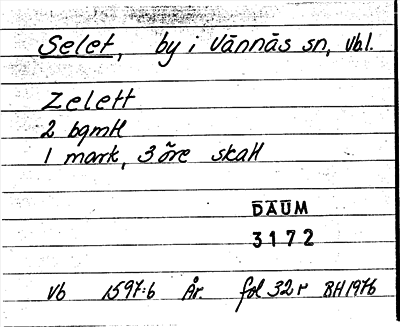 Selet, by i Vännäs sn, Vbl.
Zelett
2 bqmtl
1 mark, 3 öre skatt
DAUM
3172
Vb 1597:6 År. fol 32 r BH 1976